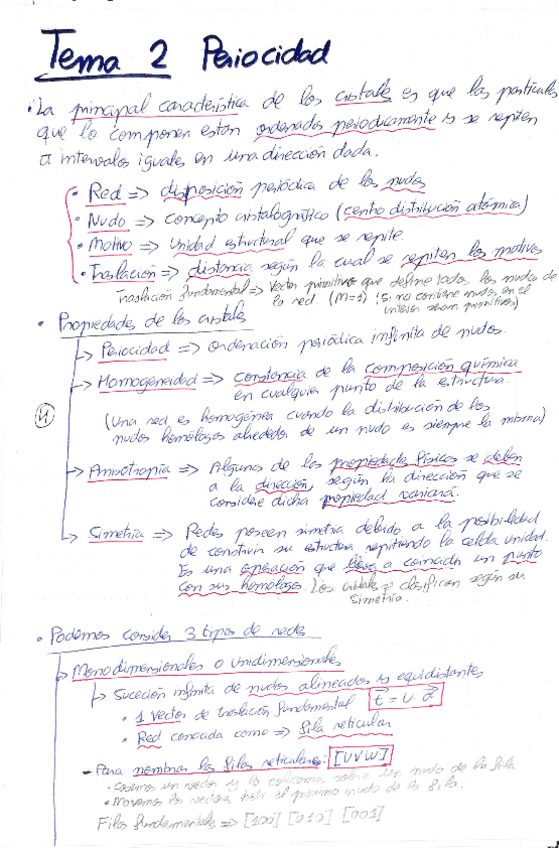 Tema 2 Periocidad
• La principal característica de los cristales es que las partículas
que lo componen están ordenadas periodicamente y se repiten
a intervalos iguales en una dirección dada.
• Red => disposición periódica de los nudos
• Nudo => concepto cristalográfico (centro distribución atómica)
• Motivo => Unidad estructural que se repite.
• Traslación => distancia según la cual se repiten los motivos
Traslación fundamental => Vector primitivo que define todos los nudos de
la red (M=1) (Si no contiene nudos en el
interior seran primitivos)
• Propiedades de los cristales
Periocidad => Ordenación periódica infinita de nudos.
Homogeneidad => constancia de la composición química
en cualquier punto de la estructura.
(Una red es homogénea cuando la distribución de los
nudos homólogos alrededor de un nudo es siempre la misma)
4
Anisotropía => Algunas de las propiedades físicas se deben
a la dirección, según la dirección que se
considere dicha propiedad variará.
Simetría => Redes poseen simetría debido a la posibilidad
de construir su estructura repitiendo la celda unidad.
Es una operación que lleva a coincidir un punto
con sus homólogos. Los cristales se clasifican según su
simetría.
• Podemos consider 3 tipos de redes
Monodimensionales o Unidimensionales
Suceción infinita de nudos alineados y equidistantes
• 1 Vector de traslación fundamental t = u. a
• Red conocida como => fila reticular
- Para nombrar las filas reticulares: [UVW]
• Cogemos un vector y lo colocamos sobre un nudo de la fila
• Movemos los vectores hasta el próximo nudo de la fila.
Filas fundamentales => [100] [010] [001]